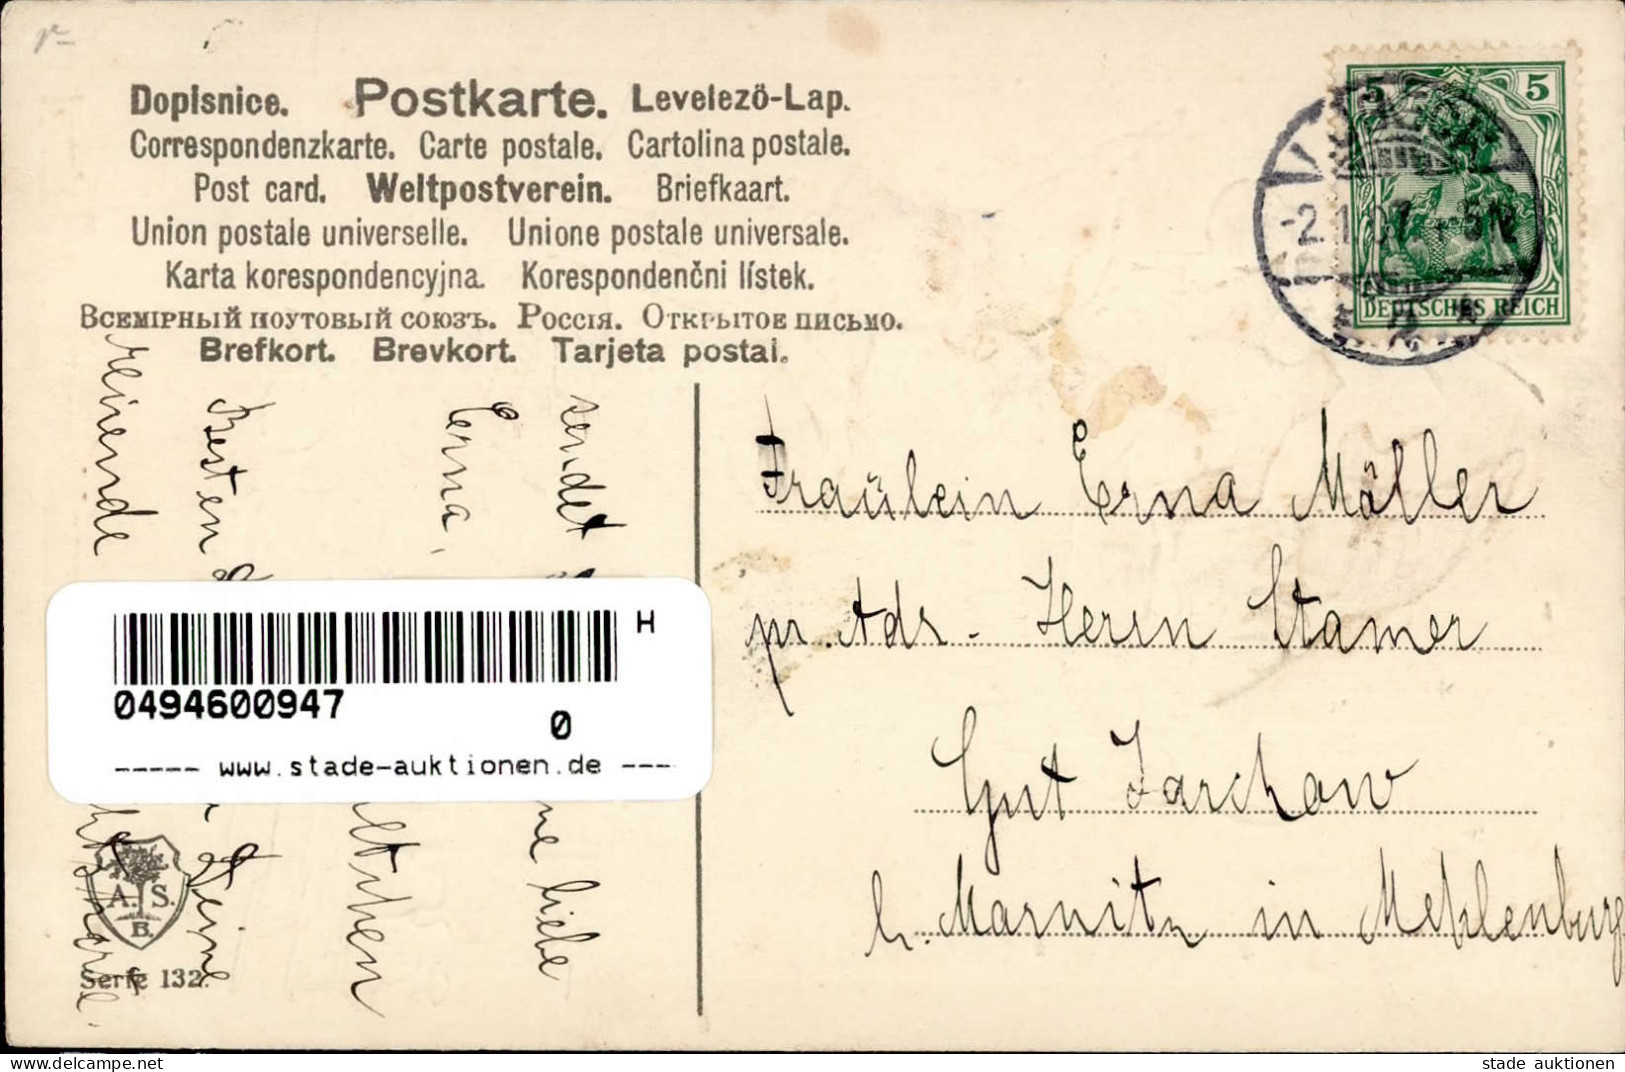 Dopisnice. Postkarte. Levelezö-Lap.
Correspondenzkarte. Carte postale. Cartolina postale.
Post card. Weltpostverein. Briefkaart.
Union postale universelle. Unione postale universale.
Karta korespondencyjna. Korespondenčni lístek.
Всемірный поутовый союзъ. Россія. Открытое письмо.
Brefkort. Brevkort. Tarjeta postal.
5 5
DEUTSCHES REICH
-2.1.07.
Fräulein Erna Möller
pr. Adr. Herrn Stamer
Gut Jarchow
b. Marnitz in Meklenburg
sendet
ne liebe
Erna,
Besten
Deine
A. S.
B.
Serie 132.
H
0494600947
0
----- www.stade-auktionen.de ----
stade auktionen
www.delcampe.net
stade auktionen